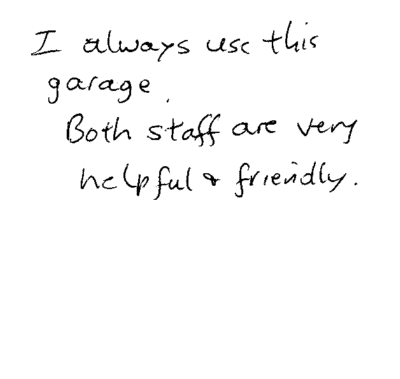 I always use this
garage.
Both staff are very
helpful & friendly.